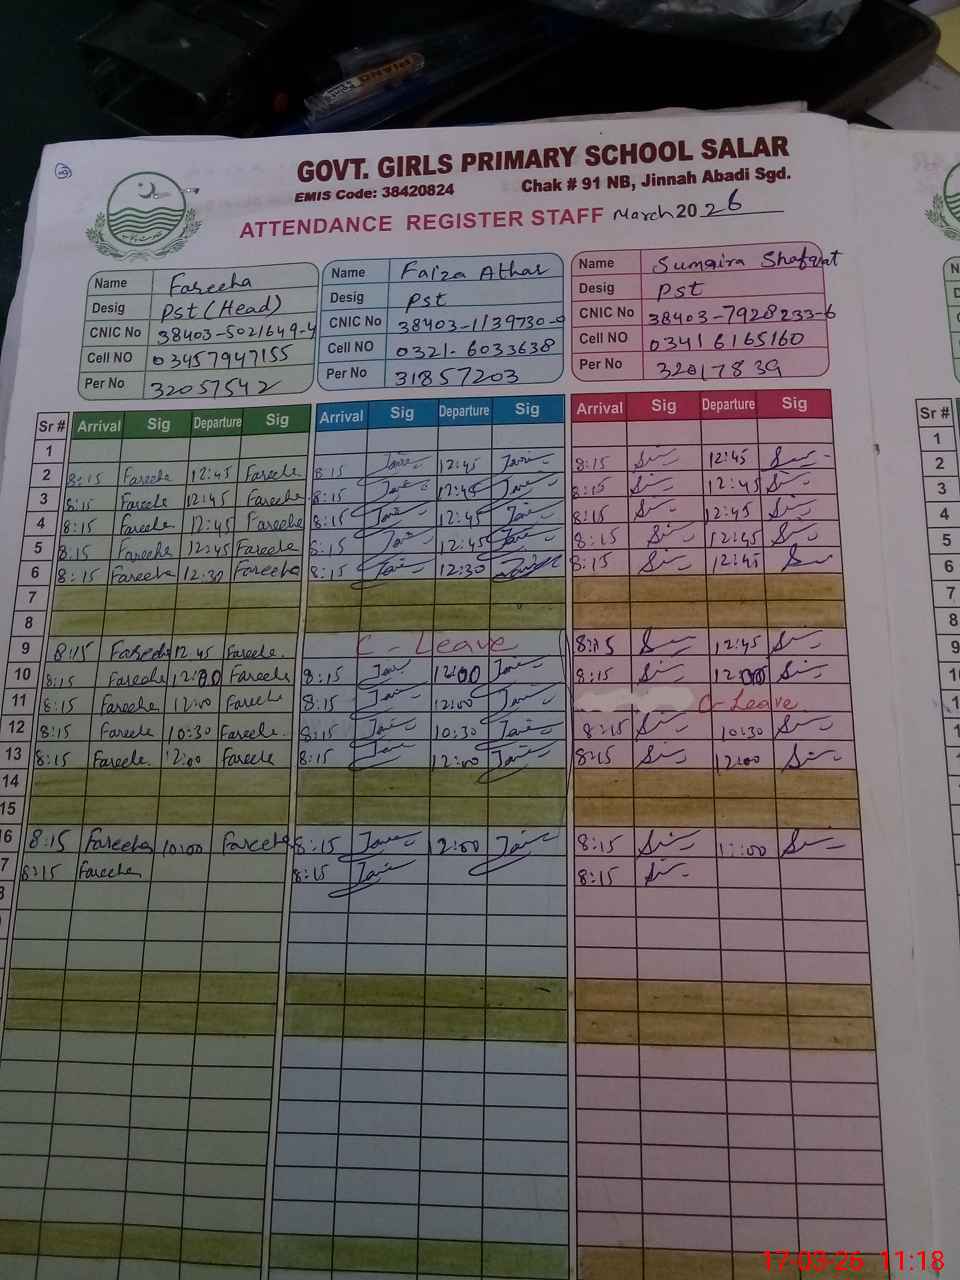 PIANO
GOVT. GIRLS PRIMARY SCHOOL SALAR
EMIS Code: 38420824 Chak # 91 NB, Jinnah Abadi Sgd.
ATTENDANCE REGISTER STAFF March 2026
Name Fareeha Name Faiza Athar Name Sumaira Shafqat
Desig Pst (Head) Desig Pst Desig Pst
CNIC No 38403-5021649-4 CNIC No 38403-1139730-9 CNIC No 38403-7928233-6
Cell NO 03457947155 Cell NO 0321-6033638 Cell NO 03416165160
Per No 32057542 Per No 31857203 Per No 32017839
Sr # Arrival Sig Departure Sig Arrival Sig Departure Sig Arrival Sig Departure Sig Sr #
1 1
2 8:15 Fareeha 12:45 Fareeha 8:15 12:45 8:15 12:45 2
3 8:15 Fareeha 12:45 Fareeha 8:15 12:45 8:15 12:45 3
4 8:15 Fareeha 12:45 Fareeha 8:15 12:45 8:15 12:45 4
5 8:15 Fareeha 12:45 Fareeha 8:15 12:45 8:15 12:45 5
6 8:15 Fareeha 12:30 Fareeha 8:15 12:30 8:15 12:45 6
7 7
8 8
9 8:15 Fareeha 12:45 Fareeha C-Leave 8:15 12:45 9
10 8:15 Fareeha 12:00 Fareeha 8:15 12:00 8:15 12:00 10
11 8:15 Fareeha 12:00 Fareeha 8:15 12:00 C-Leave
12 8:15 Fareeha 10:30 Fareeha 8:15 10:30 8:15 10:30
13 8:15 Fareeha 12:00 Fareeha 8:15 12:00 8:15 12:00
14
15
16 8:15 Fareeha 10:00 Fareeha 8:15 12:00 8:15
7 8:15 Fareeha 8:15 8:15
17-03-26 11:18